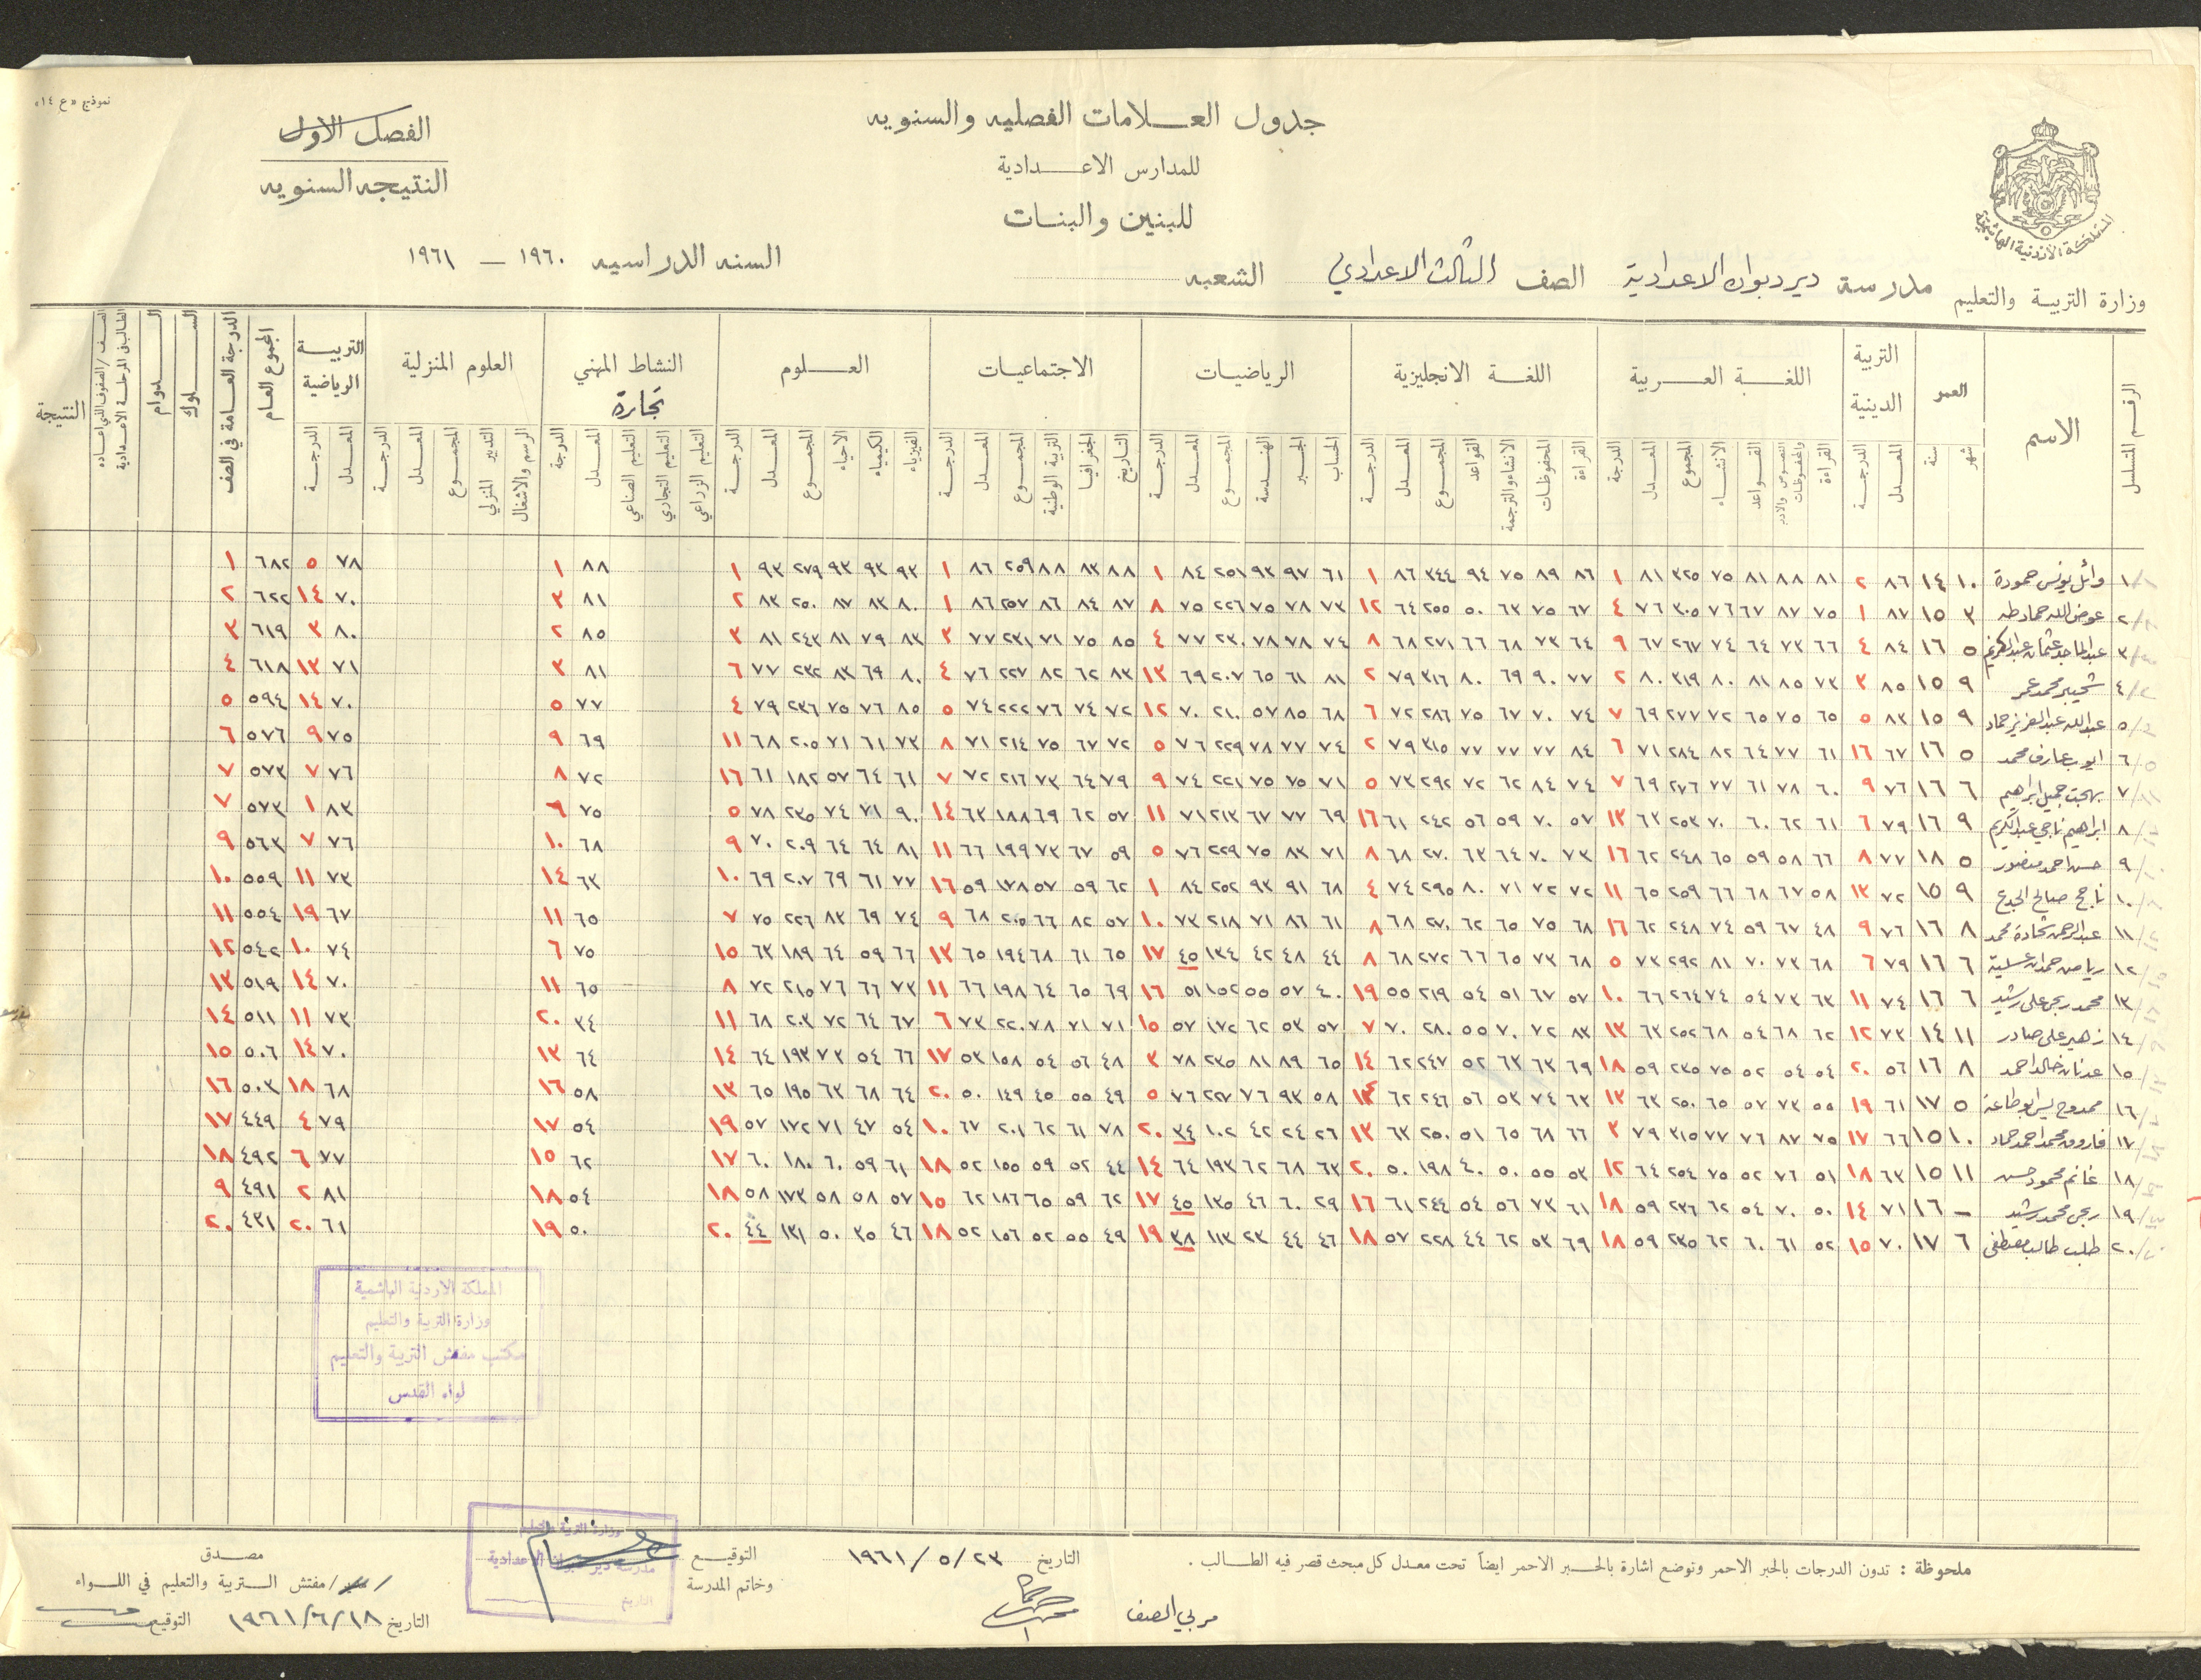 نموذج «ع ١٤»
جدول العلامات الفصليه والسنويه
الفصل الاول
للمدارس الاعدادية
النتيجه السنويه
للبنين والبنات
المملكة الأردنية الهاشمية
وزارة التربية والتعليم مدرسة ديردبوان الاعدادية الصف الثالث الاعدادي الشعبه السنه الدراسيه ١٩٦٠ – ١٩٦١
الرقم المتسلسل الاسم العمر التربية الدينية اللغة العربية اللغة الانجليزية الرياضيات الاجتماعيات العلوم النشاط المهني نجارة العلوم المنزلية التربية الرياضية المجموع العام الدرجة العامة في الصف السلوك الدوام النتيجة
شهر سنة المعدل الدرجة القراءة القواعد الانشاء المجموع المعدل الدرجة القراءة المحفوظات الانشاء والترجمة القواعد المجموع المعدل الدرجة الحساب الجبر الهندسة المجموع المعدل الدرجة التاريخ الجغرافيا التربية الوطنية المجموع المعدل الدرجة الفيزياء الكيمياء الاحياء المجموع المعدل الدرجة التعليم الزراعي التعليم التجاري التعليم الصناعي المعدل الدرجة الرسم والاشغال التدبير المنزلي المجموع المعدل الدرجة المعدل الدرجة
١ وائل يونس حمودة ١٠ ١٤ ٨٦ ٢ ٨١ ٨٨ ٨١ ٧٥ ٣٢٥ ٨١ ١ ٨٦ ٨٩ ٧٥ ٩٤ ٣٤٤ ٨٦ ١ ٦١ ٩٧ ٩٣ ٢٥١ ٨٤ ١ ٨٨ ٨٣ ٨٨ ٢٥٩ ٨٦ ١ ٩٣ ٩٣ ٩٣ ٢٧٩ ٩٣ ١ ٨٨ ١ ٧٨ ٥ ٦٨٢ ١
٢ عوض الله حماد طه ٣ ١٥ ٨٧ ١ ٧٥ ٨٧ ٦٧ ٧٦ ٣٠٥ ٧٦ ٤ ٦٧ ٧٥ ٦٣ ٥٠ ٢٥٥ ٦٤ ١٢ ٧٣ ٧٨ ٧٥ ٢٢٦ ٧٥ ٨ ٨٧ ٨٤ ٨٦ ٢٥٧ ٨٦ ١ ٨٠ ٨٣ ٨٧ ٢٥٠ ٨٣ ٢ ٨١ ٣ ٧٠ ١٤ ٦٢٢ ٢
٣ عبد الماجد عثمان عبد الكريم ٥ ١٦ ٨٤ ٤ ٦٦ ٧٣ ٦٤ ٧٤ ٢٦٧ ٦٧ ٩ ٦٤ ٧٣ ٦٨ ٦٦ ٢٧١ ٦٨ ٨ ٧٤ ٧٨ ٧٨ ٢٣٠ ٧٧ ٤ ٨٥ ٧٥ ٧١ ٢٣١ ٧٧ ٣ ٨٣ ٧٩ ٨١ ٢٤٣ ٨١ ٣ ٨٥ ٢ ٨٠ ٣ ٦١٩ ٣
٤ شحيبر محمد عمر ٩ ١٥ ٨٥ ٣ ٧٣ ٨٥ ٨١ ٨٠ ٣١٩ ٨٠ ٢ ٧٧ ٩٠ ٦٩ ٨٠ ٣١٦ ٧٩ ٢ ٨١ ٦١ ٦٥ ٢٠٧ ٦٩ ١٣ ٨٣ ٦٢ ٨٢ ٢٢٧ ٧٦ ٤ ٨٠ ٦٩ ٨٣ ٢٣٢ ٧٧ ٦ ٨١ ٣ ٧١ ١٣ ٦١٨ ٤
٥ عبدالله عبد العزيز حماد ٩ ١٥ ٨٣ ٥ ٦٥ ٧٥ ٦٥ ٧٢ ٢٧٧ ٦٩ ٧ ٧٤ ٧٠ ٦٧ ٧٥ ٢٨٦ ٧٢ ٦ ٦٨ ٨٥ ٥٧ ٢١٠ ٧٠ ١٢ ٧٢ ٧٤ ٧٦ ٢٢٢ ٧٤ ٥ ٨٥ ٧٦ ٧٥ ٢٣٦ ٧٩ ٤ ٧٧ ٥ ٧٠ ١٤ ٥٩٤ ٥
٦ ايوب عارف محمد ٥ ١٦ ٦٧ ١٦ ٦١ ٧٧ ٦٤ ٨٢ ٢٨٤ ٧١ ٦ ٨٤ ٧٧ ٧٧ ٧٧ ٣١٥ ٧٩ ٢ ٧٤ ٧٧ ٧٨ ٢٢٩ ٧٦ ٥ ٧٢ ٦٧ ٧٥ ٢١٤ ٧١ ٨ ٧٣ ٦١ ٧١ ٢٠٥ ٦٨ ١١ ٦٩ ٩ ٧٥ ٩ ٥٧٦ ٦
٧ بهجت جميل ابراهيم ٦ ١٦ ٧٦ ٩ ٦٠ ٧٨ ٦١ ٧٧ ٢٧٦ ٦٩ ٧ ٧٤ ٨٤ ٦٢ ٧٢ ٢٩٢ ٧٣ ٥ ٧١ ٧٥ ٧٥ ٢٢١ ٧٤ ٩ ٧٩ ٦٤ ٧٣ ٢١٦ ٧٢ ٧ ٦١ ٦٤ ٥٧ ١٨٢ ٦١ ١٦ ٧٢ ٨ ٧٦ ٧ ٥٧٣ ٧
٨ ابراهيم ناجي عبد الكريم ٩ ١٦ ٧٩ ٦ ٦١ ٦٢ ٦٠ ٧٠ ٢٥٣ ٦٣ ١٣ ٥٧ ٧٠ ٥٩ ٥٦ ٢٤٢ ٦١ ١٦ ٦٩ ٧٧ ٦٧ ٢١٣ ٧١ ١١ ٥٧ ٦٢ ٦٩ ١٨٨ ٦٣ ١٤ ٩٠ ٧١ ٧٤ ٢٣٥ ٧٨ ٥ ٧٥ ٦ ٨٣ ١ ٥٧٣ ٧
٩ حسن احمد منصور ٥ ١٨ ٧٧ ٨ ٦٦ ٥٨ ٥٩ ٦٥ ٢٤٨ ٦٢ ١٦ ٧٣ ٧٠ ٦٤ ٦٣ ٢٧٠ ٦٨ ٨ ٧١ ٨٣ ٧٥ ٢٢٩ ٧٦ ٥ ٥٩ ٦٧ ٧٣ ١٩٩ ٦٦ ١١ ٨١ ٦٤ ٦٤ ٢٠٩ ٧٠ ٩ ٦٨ ١٠ ٧٦ ٧ ٥٦٣ ٩
١٠ ناجح صالح الجدع ٩ ١٥ ٧٢ ١٣ ٥٨ ٦٧ ٦٨ ٦٦ ٢٥٩ ٦٥ ١١ ٧٢ ٧٢ ٧١ ٨٠ ٢٩٥ ٧٤ ٤ ٦٨ ٩١ ٩٣ ٢٥٢ ٨٤ ١ ٦٢ ٥٩ ٥٧ ١٧٨ ٥٩ ١٦ ٧٧ ٦١ ٦٩ ٢٠٧ ٦٩ ١٠ ٦٣ ١٤ ٧٣ ١١ ٥٥٩ ١٠
١١ عبد الرحمن شحادة محمد ٨ ١٦ ٧٦ ٩ ٤٨ ٦٧ ٥٩ ٧٤ ٢٤٨ ٦٢ ١٦ ٦٨ ٧٥ ٦٥ ٦٢ ٢٧٠ ٦٨ ٨ ٦١ ٨٦ ٧١ ٢١٨ ٧٣ ١٠ ٥٧ ٨٢ ٦٦ ٢٠٥ ٦٨ ٩ ٧٤ ٦٩ ٨٣ ٢٢٦ ٧٥ ٧ ٦٥ ١١ ٦٧ ١٩ ٥٥٤ ١١
١٢ رياض حمدان ٦ ١٦ ٧٩ ٦ ٦٨ ٧٣ ٧٠ ٨١ ٢٩٢ ٧٣ ٥ ٦٨ ٧٣ ٦٥ ٦٦ ٢٧٢ ٦٨ ٨ ٤٤ ٤٨ ٤٢ ١٣٤ ٤٥ ١٧ ٦٥ ٦١ ٦٨ ١٩٤ ٦٥ ١٣ ٦٦ ٥٩ ٦٤ ١٨٩ ٦٣ ١٥ ٧٥ ٦ ٧٤ ١٠ ٥٤٢ ١٢
١٣ محمد ربحي علي رشيد ٦ ١٦ ٧٤ ١١ ٦٣ ٧٣ ٥٤ ٧٤ ٢٦٤ ٦٦ ١٠ ٥٧ ٦٧ ٥١ ٥٤ ٢١٩ ٥٥ ١٩ ٤٠ ٥٧ ٥٥ ١٥٢ ٥١ ١٦ ٦٩ ٦٥ ٦٤ ١٩٨ ٦٦ ١١ ٧٣ ٦٦ ٧٦ ٢١٥ ٧٢ ٨ ٦٥ ١١ ٧٠ ١٤ ٥١٩ ١٣
١٤ زهير علي صادر ١١ ١٤ ٧٣ ١٢ ٦٢ ٦٨ ٥٤ ٦٨ ٢٥٢ ٦٣ ١٣ ٨٣ ٧٢ ٧٠ ٥٥ ٢٨٠ ٧٠ ٧ ٥٧ ٥٣ ٦٢ ١٧٢ ٥٧ ١٥ ٧١ ٧١ ٧٨ ٢٢٠ ٧٣ ٦ ٦٧ ٦٤ ٧٢ ٢٠٣ ٦٨ ١١ ٣٤ ٢٠ ٧٣ ١١ ٥١١ ١٤
١٥ عدنان خالد احمد ٨ ١٦ ٥٦ ٢٠ ٥٤ ٥٤ ٥٢ ٧٥ ٢٣٥ ٥٩ ١٨ ٦٩ ٦٣ ٦٣ ٥٢ ٢٤٧ ٦٢ ١٤ ٦٥ ٨٩ ٨١ ٢٣٥ ٧٨ ٣ ٤٨ ٥٦ ٥٤ ١٥٨ ٥٣ ١٧ ٦٦ ٥٤ ٧٣ ١٩٣ ٦٤ ١٤ ٦٤ ١٣ ٧٠ ١٤ ٥٠٦ ١٥
١٦ ممدوح ٥ ١٧ ٦١ ١٩ ٥٥ ٧٣ ٥٧ ٦٥ ٢٥٠ ٦٣ ١٣ ٦٣ ٧٤ ٥٣ ٥٦ ٢٤٦ ٦٢ ٥٨ ٩٣ ٧٦ ٢٢٧ ٧٦ ٥ ٤٩ ٥٥ ٤٥ ١٤٩ ٥٠ ٢٠ ٦٤ ٦٨ ٦٣ ١٩٥ ٦٥ ١٣ ٥٨ ١٦ ٦٨ ١٨ ٥٠٣ ١٦
١٧ فاروق محمد احمد حماد ١٠ ١٥ ٦٦ ١٧ ٧٥ ٨٧ ٧٦ ٧٧ ٣١٥ ٧٩ ٣ ٦٦ ٦٨ ٦٥ ٥١ ٢٥٠ ٦٣ ١٣ ٢٦ ٢٤ ٤٢ ١٠٢ ٣٤ ٢٠ ٧٨ ٦١ ٦٢ ٢٠١ ٦٧ ١٠ ٥٤ ٤٧ ٧١ ١٧٢ ٥٧ ١٩ ٥٤ ١٧ ٧٩ ٤ ٤٤٩ ١٧
١٨ غانم محمود حسن ١١ ١٥ ٦٣ ١٨ ٥١ ٧٦ ٥٢ ٧٥ ٢٥٤ ٦٤ ١٢ ٥٣ ٥٥ ٥٠ ٤٠ ١٩٨ ٥٠ ٢٠ ٦٣ ٦٨ ٦٢ ١٩٣ ٦٤ ١٤ ٤٤ ٥٢ ٥٩ ١٥٥ ٥٢ ١٨ ٦١ ٥٩ ٦٠ ١٨٠ ٦٠ ١٧ ٦٢ ١٥ ٧٧ ٦ ٤٩٢ ١٨
١٩ ربحي محمد رشيد – ١٦ ٧١ ١٤ ٥٠ ٧٠ ٥٤ ٦٢ ٢٣٦ ٥٩ ١٨ ٦١ ٧٣ ٥٦ ٥٤ ٢٤٤ ٦١ ١٦ ٢٩ ٦٠ ٤٦ ١٣٥ ٤٥ ١٧ ٦٢ ٥٩ ٦٥ ١٨٦ ٦٢ ١٥ ٥٧ ٥٨ ٥٨ ١٧٣ ٥٨ ١٨ ٥٤ ١٨ ٨١ ٢ ٤٩١ ٩
٢٠ طلب طالب مصطفى ٦ ١٧ ٧٠ ١٥ ٥٢ ٦١ ٦٠ ٦٢ ٢٣٥ ٥٩ ١٨ ٦٩ ٥٣ ٦٢ ٤٤ ٢٢٨ ٥٧ ١٨ ٤٦ ٤٤ ٢٣ ١١٣ ٣٨ ١٩ ٤٩ ٥٥ ٥٢ ١٥٦ ٥٢ ١٨ ٤٦ ٣٥ ٥٠ ١٣١ ٤٤ ٢٠ ٥٠ ١٩ ٦١ ٢٠ ٤٣١ ٢٠
المملكة الاردنية الهاشمية
وزارة التربية والتعليم
مكتب مفتش التربية والتعليم
لواء القدس
ملحوظة : تدون الدرجات بالحبر الاحمر وتوضع اشارة بالحبر الاحمر ايضاً تحت معدل كل مبحث قصر فيه الطالب .
التاريخ ٢٣ / ٥ / ١٩٦١
مربي الصف
التوقيع
وخاتم المدرسة
وزارة التربية والتعليم
مدرسة دير دبوان الاعدادية
التاريخ
مصدق
مفتش التربية والتعليم في اللواء
التاريخ ١٨ / ٦ / ١٩٦١ التوقيع